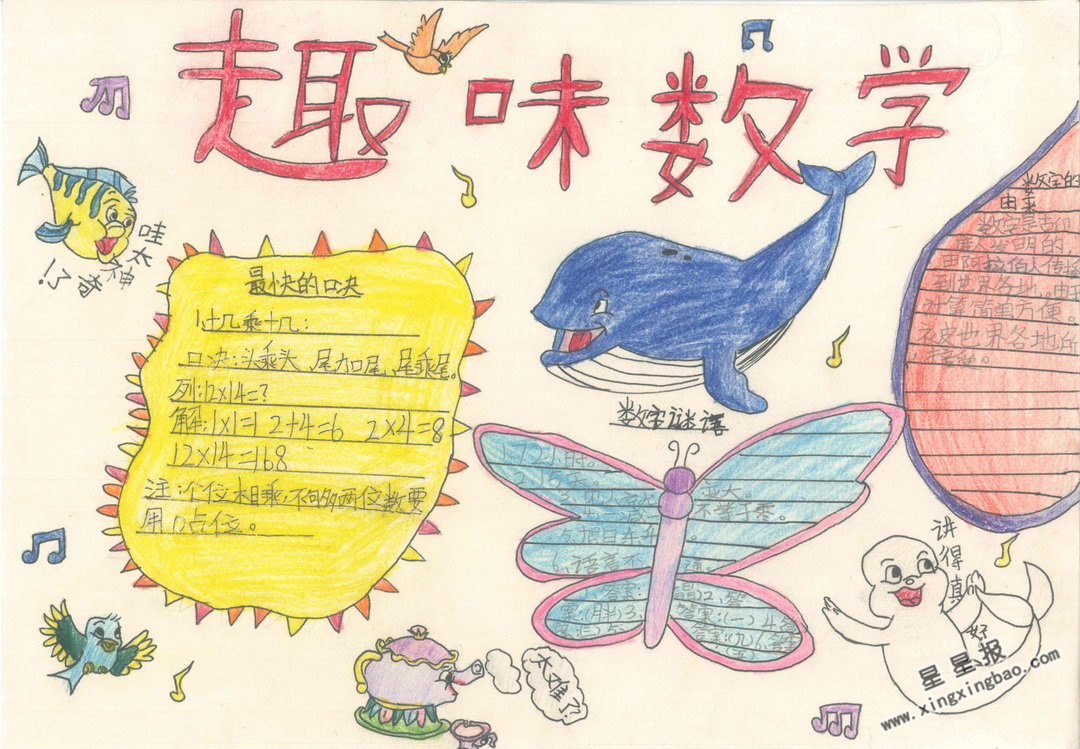 趣味数学
哇
太神
奇了!
最快的口决
1.十几乘十几:
口决:头乘头,尾加尾,尾乘尾。
列:12×14=?
解:1×1=1 2+4=6 2×4=8
12×14=168
注:个位相乘,不够两位数要
用0占位。
数字谜语
1.12小时。
2.16天
不等于零。
6.语言不
数字的
由来
数字是古印
度人发明的,
由阿拉伯人传播
到世界各地。由于
计算简单方便。
衣皮世界各地所
接受。
讲
得
真
好
太难了
星星报
www.xingxingbao.com